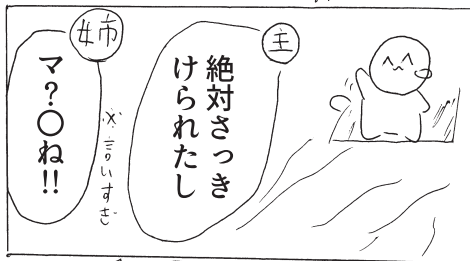 主
絶対さっき
けられたし
姉
マ?〇ね!!
※言いすぎ